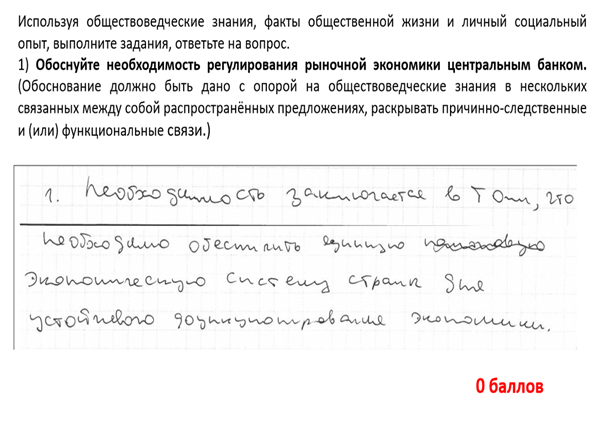 Используя обществоведческие знания, факты общественной жизни и личный социальный
опыт, выполните задания, ответьте на вопрос.
1) Обоснуйте необходимость регулирования рыночной экономики центральным банком.
(Обоснование должно быть дано с опорой на обществоведческие знания в нескольких
связанных между собой распространённых предложениях, раскрывать причинно-следственные
и (или) функциональные связи.)
1. Необходимость заключается в том, что
необходимо обеспечить единую
экономическую систему страны для
устойчивого функционирования экономики.
0 баллов